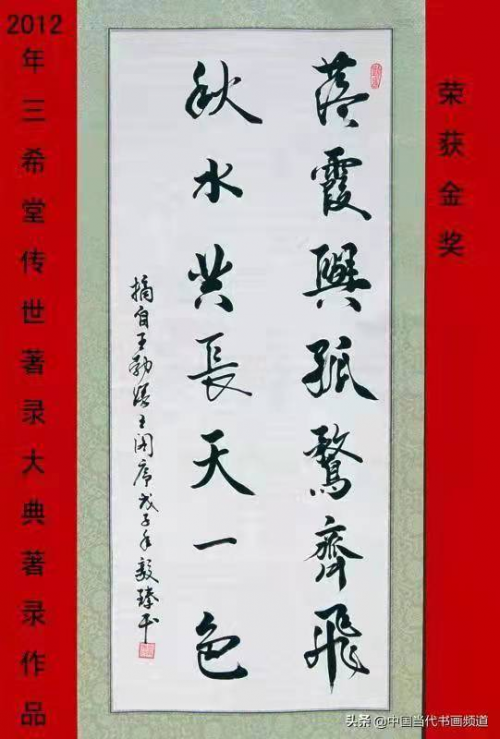 2012年三希堂传世著录大典著录作品
荣获金奖
落霞與孤鶩齊飛
秋水共長天一色
摘自王勃滕王阁序戊子年毅臻
头条 @中国当代书画频道